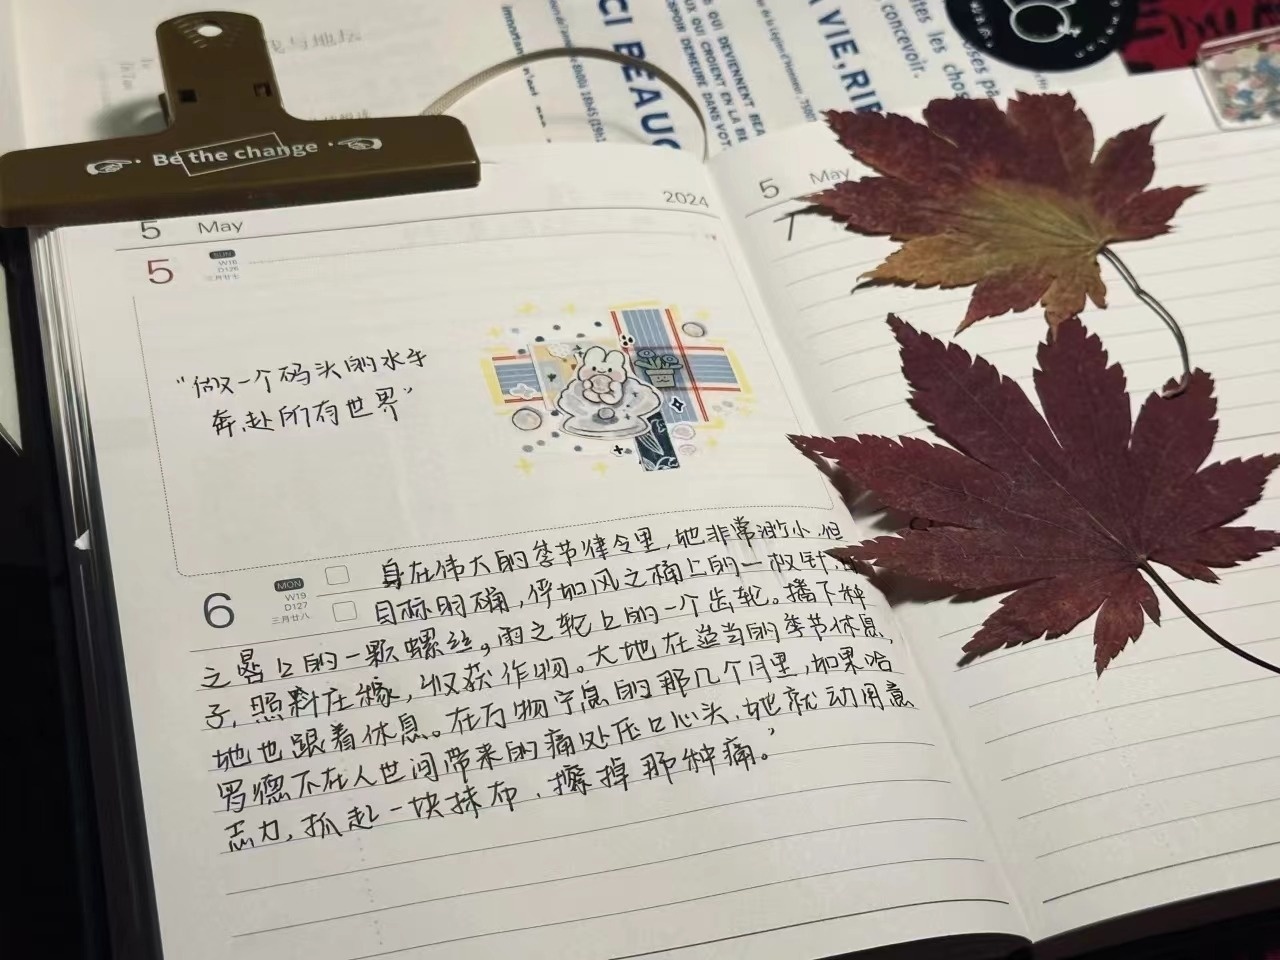 我与地坛
Be the change
CI BEAUC
QUI DEVIENNENT BEA
QUI CROIENT EN LA BE
ESPOIR DEMEURE DANS VOT
A VIE, RIE
tes les chos
concevoir.
oses pa
5 May 2024
5
SUN
W18
D126
三月廿七
"做一个码头的水手
奔赴所有世界"
6
MON
W19
D127
三月廿八
身在伟大的季节律令里,她非常渺小,但
目标明确,伴如风之桶上的一枚针,
之器上的一颗螺丝,雨之轮上的一个齿轮。播下种
子,照料庄稼,收获作物。大地在适当的季节休息,
她也跟着休息。在万物宁息的那几个月里,如果哈
罗德不在人世间带来的痛处压口心头,她就动用意
志力,抓起一块抹布,擦掉那种痛。"
5 May
7